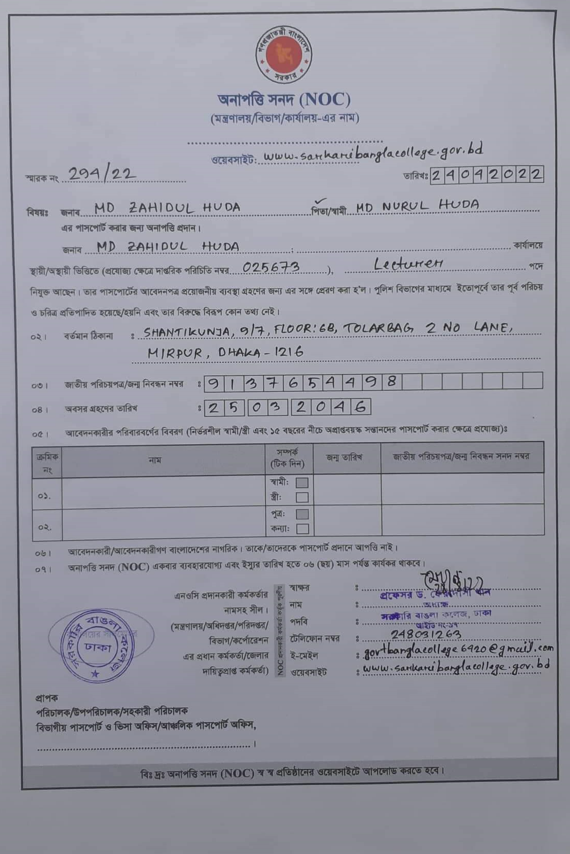 গণপ্রজাতন্ত্রী বাংলাদেশ
সরকার
অনাপত্তি সনদ (NOC)
(মন্ত্রণালয়/বিভাগ/কার্যালয়-এর নাম)
ওয়েবসাইট: www.sarkaribanglacollege.gov.bd
স্মারক নং 294/22 তারিখঃ 24042022
বিষয়ঃ জনাব MD ZAHIDUL HUDA পিতা/স্বামী MD NURUL HUDA
এর পাসপোর্ট করার জন্য অনাপত্তি প্রদান।
জনাব MD ZAHIDUL HUDA : কার্যালয়ে
স্থায়ী/অস্থায়ী ভিত্তিতে (প্রযোজ্য ক্ষেত্রে দাপ্তরিক পরিচিতি নম্বর 025673 ), Lecturer পদে
নিযুক্ত আছেন। তার পাসপোর্টের আবেদনপত্র প্রয়োজনীয় ব্যবস্থা গ্রহণের জন্য এর সঙ্গে প্রেরণ করা হ'ল। পুলিশ বিভাগের মাধ্যমে ইতোপূর্বে তার পূর্ব পরিচয়
ও চরিত্র প্রতিপাদিত হয়েছে/হয়নি এবং তার বিরুদ্ধে বিরূপ কোন তথ্য নেই।
০২। বর্তমান ঠিকানা : SHANTIKUNJA, 9/7, FLOOR:6B, TOLARBAG 2 NO LANE,
MIRPUR, DHAKA-1216
০৩। জাতীয় পরিচয়পত্র/জন্ম নিবন্ধন নম্বর : 9137654498
০৪। অবসর গ্রহণের তারিখ : 25032046
০৫। আবেদনকারীর পরিবারবর্গের বিবরণ (নির্ভরশীল স্বামী/স্ত্রী এবং ১৫ বছরের নীচে অপ্রাপ্তবয়স্ক সন্তানদের পাসপোর্ট করার ক্ষেত্রে প্রযোজ্য)ঃ
ক্রমিক নং নাম সম্পর্ক (টিক দিন) জন্ম তারিখ জাতীয় পরিচয়পত্র/জন্ম নিবন্ধন সনদ নম্বর
০১. স্বামী:
স্ত্রী:
০২. পুত্র:
কন্যা:
০৬। আবেদনকারী/আবেদনকারীগণ বাংলাদেশের নাগরিক। তাকে/তাদেরকে পাসপোর্ট প্রদানে আপত্তি নাই।
০৭। অনাপত্তি সনদ (NOC) একবার ব্যবহারযোগ্য এবং ইস্যুর তারিখ হতে ০৬ (ছয়) মাস পর্যন্ত কার্যকর থাকবে।
এনওসি প্রদানকারী কর্মকর্তার
নামসহ সীল।
(মন্ত্রণালয়/অধিদপ্তর/পরিদপ্তর/
বিভাগ/কর্পোরেশন
এর প্রধান কর্মকর্তা/জেলার
দায়িত্বপ্রাপ্ত কর্মকর্তা)
স্বাক্ষর :
নাম : প্রফেসর ড.
অধ্যক্ষ
পদবি : সরকারি বাঙলা কলেজ, ঢাকা
টেলিফোন নম্বর : 248031263
ই-মেইল : govtbanglacollege6420@gmail.com
ওয়েবসাইট : www.sarkaribanglacollege.gov.bd
সরকারি বাঙলা কলেজ
ঢাকা
প্রাপক
পরিচালক/উপপরিচালক/সহকারী পরিচালক
বিভাগীয় পাসপোর্ট ও ভিসা অফিস/আঞ্চলিক পাসপোর্ট অফিস,
বিঃ দ্রঃ অনাপত্তি সনদ (NOC) স্ব স্ব প্রতিষ্ঠানের ওয়েবসাইটে আপলোড করতে হবে।